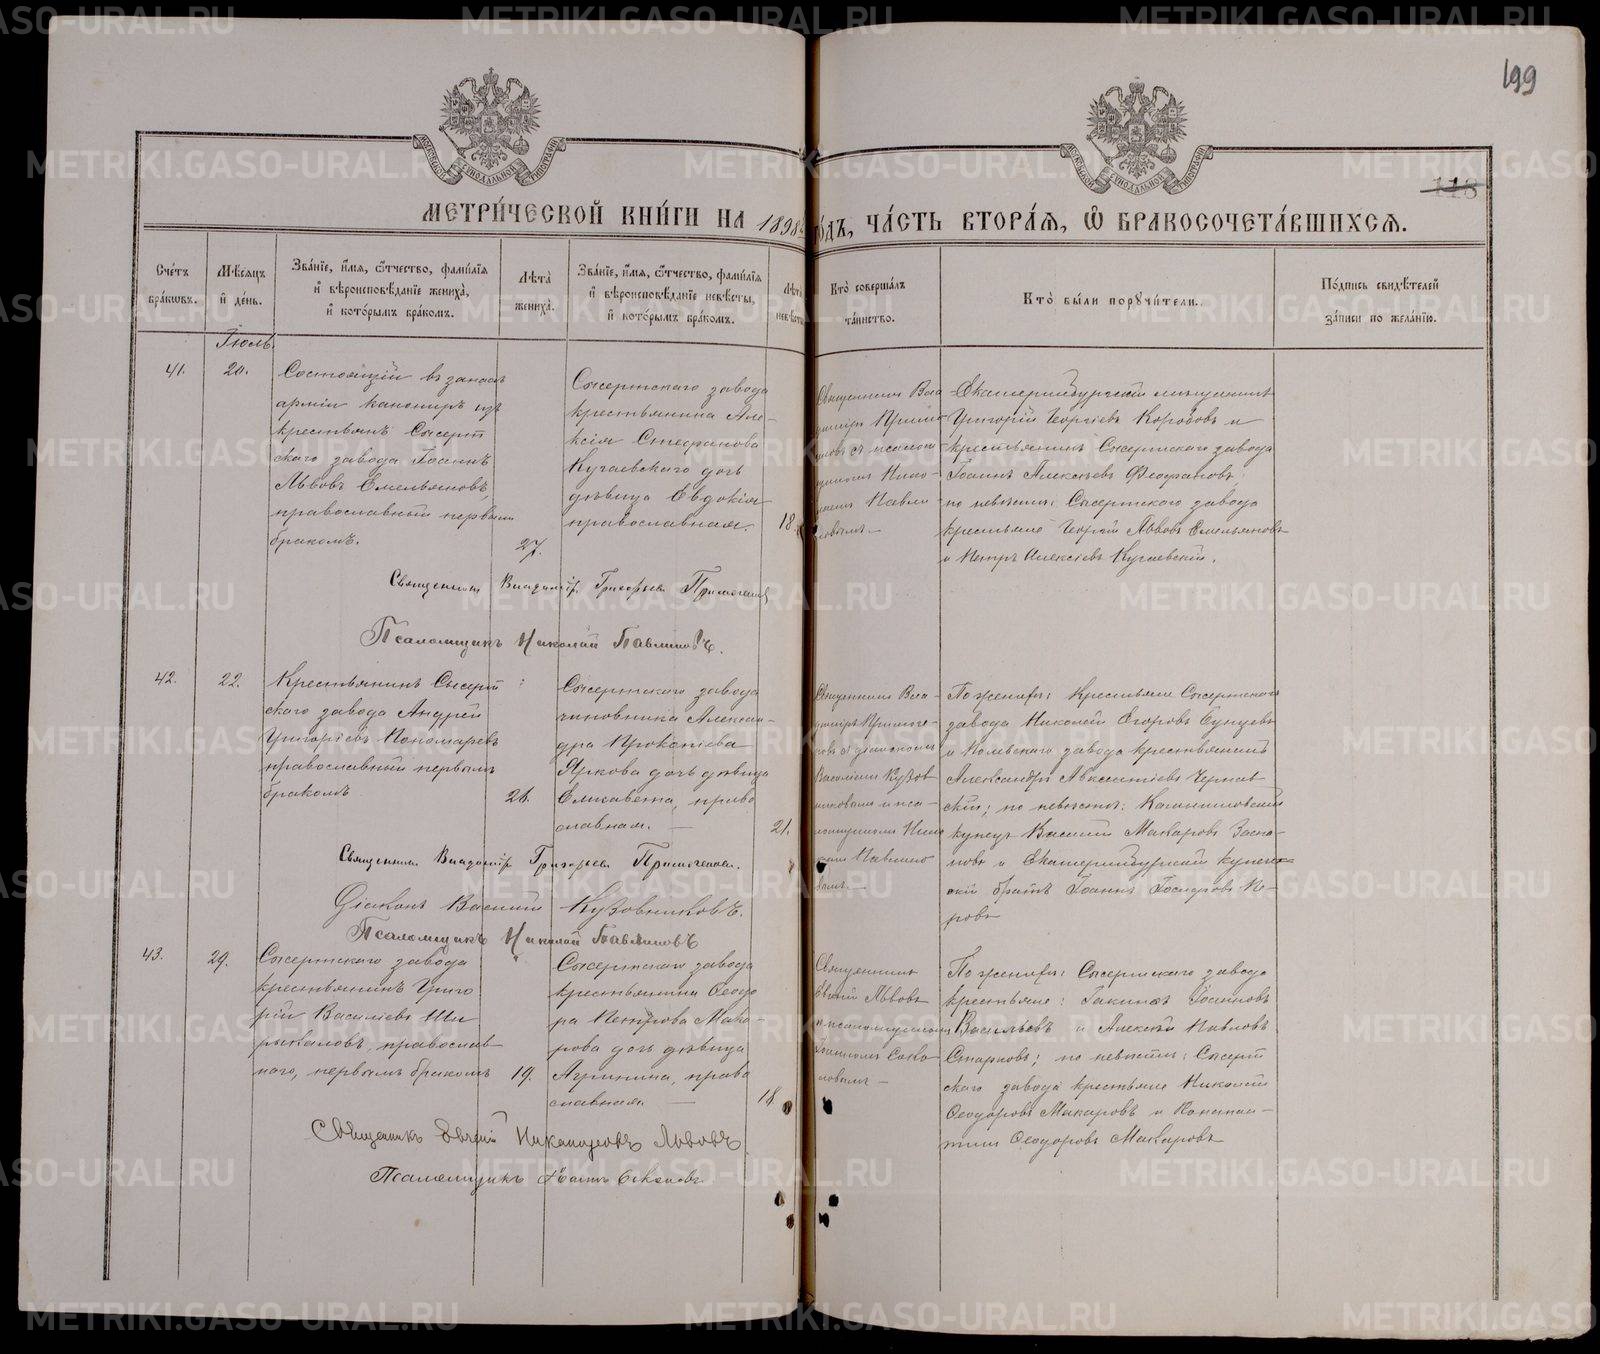 199
118
МОСКОВСКОЙ СУНОДАЛЬНОЙ ТИПОГРАФІИ
МОСКОВСКОЙ СУНОДАЛЬНОЙ ТИПОГРАФІИ
МЕТРИ́ЧЕСКОЙ КНИ́ГИ НА 1898 го́дъ, ЧА́СТЬ ВТОРА́Я, Ѽ БРАКОСОЧЕТА́ВШИХСЯ.
Сче́тъ бра́кωвъ.
Мѣ́сяцъ и҆ де́нь.
Зва́нїе, и҆́мя, ѻ҆́тчество, фами́лїя и҆ вѣроисповѣ́данїе жениха̀, и҆ кото́рымъ бра́комъ.
Лѣта̀ жениха̀.
Зва́нїе, и҆́мя, ѻ҆́тчество, фами́лїя и҆ вѣроисповѣ́данїе невѣ́сты, и҆ кото́рымъ бра́комъ.
Лѣта̀ невѣ́сты
Кто̀ соверша́лъ та́инство.
Кто̀ бы́ли порꙋчи́тели.
По́дпись свидѣ́телей за́писи по жела́нїю.
Іюль.
41.
20.
Состоящій въ запасѣ
арміи канониръ изъ
крестьянъ Сысерт
скаго завода Іоаннъ
Львовъ Емельяновъ,
православный первымъ
бракомъ.
27.
Сысертскаго завода
крестьянина Але-
ксія Стефанова
Кугаевскаго дочь
дѣвица Евдокія
православная.
18.
Священникъ Вла
диміръ Примо
съ псалом
щикомъ Нико-
лаемъ Павли-
новымъ
Екатеринбургскій мѣщанинъ
Григорій Георгіевъ Коробовъ и
крестьянинъ Сысертскаго завода
Іоаннъ Алексѣевъ Феофановъ;
по невѣстѣ: Сысертскаго завода
крестьяне Георгій Львовъ Емельяновъ
и Петръ Алексіевъ Кугаевскій.
Священникъ Владиміръ Григорьевъ
Псаломщикъ Николай Павлиновъ.
42.
22.
Крестьянинъ Сысерт
скаго завода Андрей
Григоріевъ Пономаревъ
православный первымъ
бракомъ
Сысертскаго завода
чиновника Алексан-
дра Прокопіева
Яркова дочь дѣвица
Елисавета, право
славная.
21.
Священникъ Вла-
диміръ
съ діакономъ
Василіемъ Кузов
никовымъ и пса-
ломщикомъ Нико
лаемъ Павлино
вымъ.
По женихѣ: Крестьяне Сысертскаго
завода Николай Егоровъ
и Полевскаго завода крестьянинъ
Александръ
по невѣстѣ:
купецъ Василій Макаровъ
и Екатеринбургскій купече-
скій братъ Іоаннъ
Священникъ Владиміръ Григорьевъ
Діаконъ Василій Кузовниковъ.
Псаломщикъ Николай Павлиновъ
43.
29.
Сысертскаго завода
крестьянинъ Григо
рій Василіевъ Ши
рыкаловъ, православ
наго, первымъ бракомъ
19.
Сысертскаго завода
крестьянина Ѳеодо
ра Петрова Мака-
рова дочь дѣвица
Агрипина, право
славная.
18
Священникъ
Евгеній Львовъ
и псаломщикомъ
Іоанномъ Соко-
ловымъ
По женихѣ: Сысертскаго завода
крестьяне: Іакинѳъ Іоанновъ
Васильевъ и Алексій Павловъ
Старковъ; по невѣстѣ: Сысерт
скаго завода крестьяне Николай
Ѳеодоровъ Макаровъ и Констан-
тинъ Ѳеодоровъ Макаровъ
Священникъ Евгеній Никаноровъ Львовъ
Псаломщикъ Іоаннъ Соколовъ
METRIKI.GASO-URAL.RU